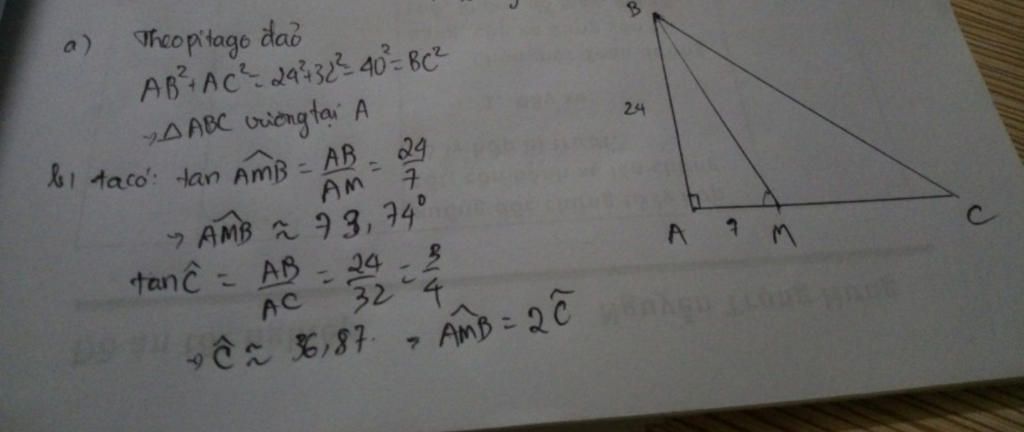 a) Theo pitago đảo
AB² + AC² = 24² + 32² = 40² = BC²
→ △ABC vuông tại A
b) ta có: tan AMB̂ = AB/AM = 24/7
→ AMB̂ ≈ 73,74°
tan Ĉ = AB/AC = 24/32 = 3/4
→ Ĉ ≈ 36,87. → AMB̂ = 2Ĉ
B
24
A 7 M C